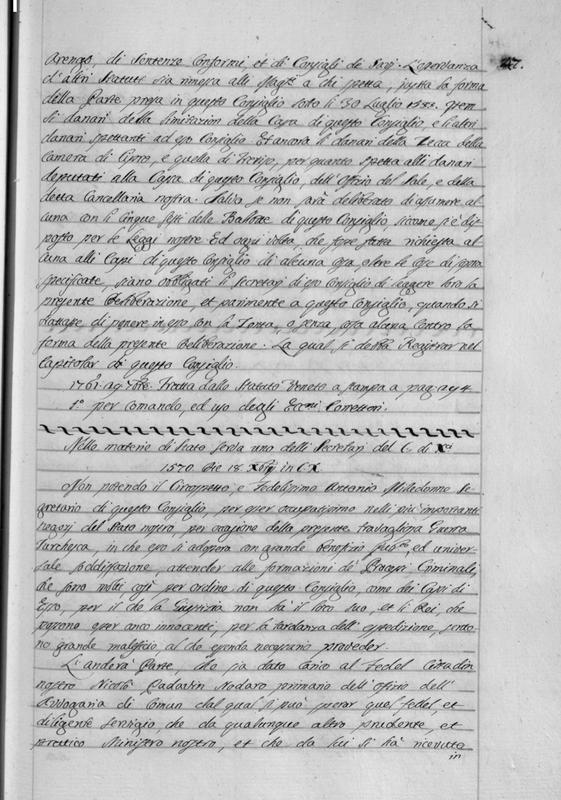 47.
Arengo, di Sentenze Conformi, et di Consigli de Savj. L'osservanza
d'altri Statuti sia rimessa alli Mag.ti a chi spetta, justa la forma
della Parte presa in questo Consiglio sotto li 30 Luglio 1533. Item
li danari della limitazion della Cassa di questo Consiglio, e li altri
danari spettanti ad esso Consiglio. Et ancora li danari della Zecca della
Camera di e quella di Treviso, per quanto spetta alli danari
deputati alla Cassa di questo Consiglio, dell'Ofizio del Sale, e della
detta Cancellaria nostra. Salvo se non sarà deliberato di assumere al-
cuna con li cinque sesti delle Ballote di questo Consiglio, siccome si è dis-
posto per le Leggi nostre. Ed ogni volta, che fosse fatta richiesta al-
cuna alli Capi di questo Consiglio di alcuna cosa, oltre le cose di sopra
specificate, siano obbligati li Secretarj di esso Consiglio di leggere loro la
presente Deliberazione, et parimente a questo Consiglio, quando si
trattasse di ponere in esso con la Zonta, o senza cosa alcuna contro la
forma della presente deliberazione. La qual si debba Registrar nel
Capitolar di questo Consiglio.
1761. Tratta dallo Statuto Veneto a stampa a pag. 294
t.o per comando, ed uso degli Ecc.mi Correttori.
Nelle materie di Stato serva uno delli Secretarj del C. di X.ci
1570 Die 18 Xbris in C X.
Non potendo il Circospetto, e Fedelissimo Antonio Milledonne Se-
gretario di questo Consiglio, per esser occupatissimo nelli più importanti
negozj del Stato nostro, per occasione della presente travagliosa Guerra
Turchesca, in che esso si adopera con grande benefizio pub.co ed univer-
sale soddisfazione, attender alle formazioni de' Processi Criminali,
che sono molti così per ordine di questo Consiglio, come dei Capi di
Esso, per il che la Giustizia non hà il loco suo, et li Rei, che
possono esser anco innocenti, per la tardanza dell'espedizione, sento-
no grande maleficio, al che essendo necessario proveder.
L'anderà Parte, che sia dato carico al Fedel Cittadin
nostro Nicolò Padavin Nodaro primario dell'Ofizio dell'
Avvogaria di Comun dal qual si può sperar quel fedel, et
diligente servizio, che da qualunque altro prudente, et
prattico Ministro nostro, et che da lui si hà ricevuto
in